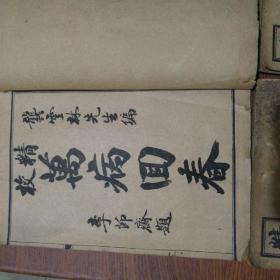 龔雲林先生編
精校
萬病回春
李節齋題